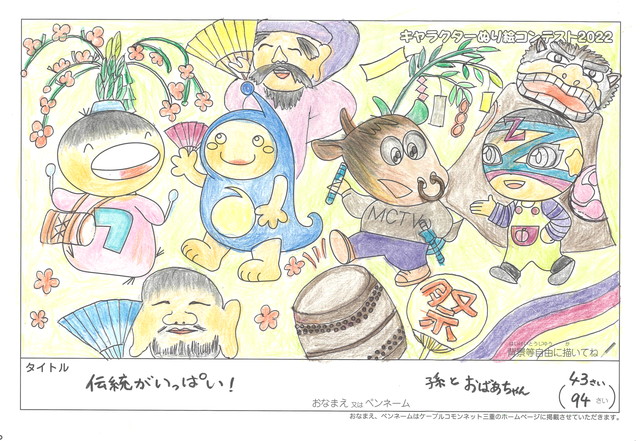 キャラクターぬり絵コンテスト2022
MCTV
祭
背景等自由に描いてね
タイトル
伝統がいっぱい！
孫とおばあちゃん
43さい
(94さい)
おなまえ又はペンネーム
おなまえ、ペンネームはケーブルコモンネット三重のホームページに掲載させていただきます。